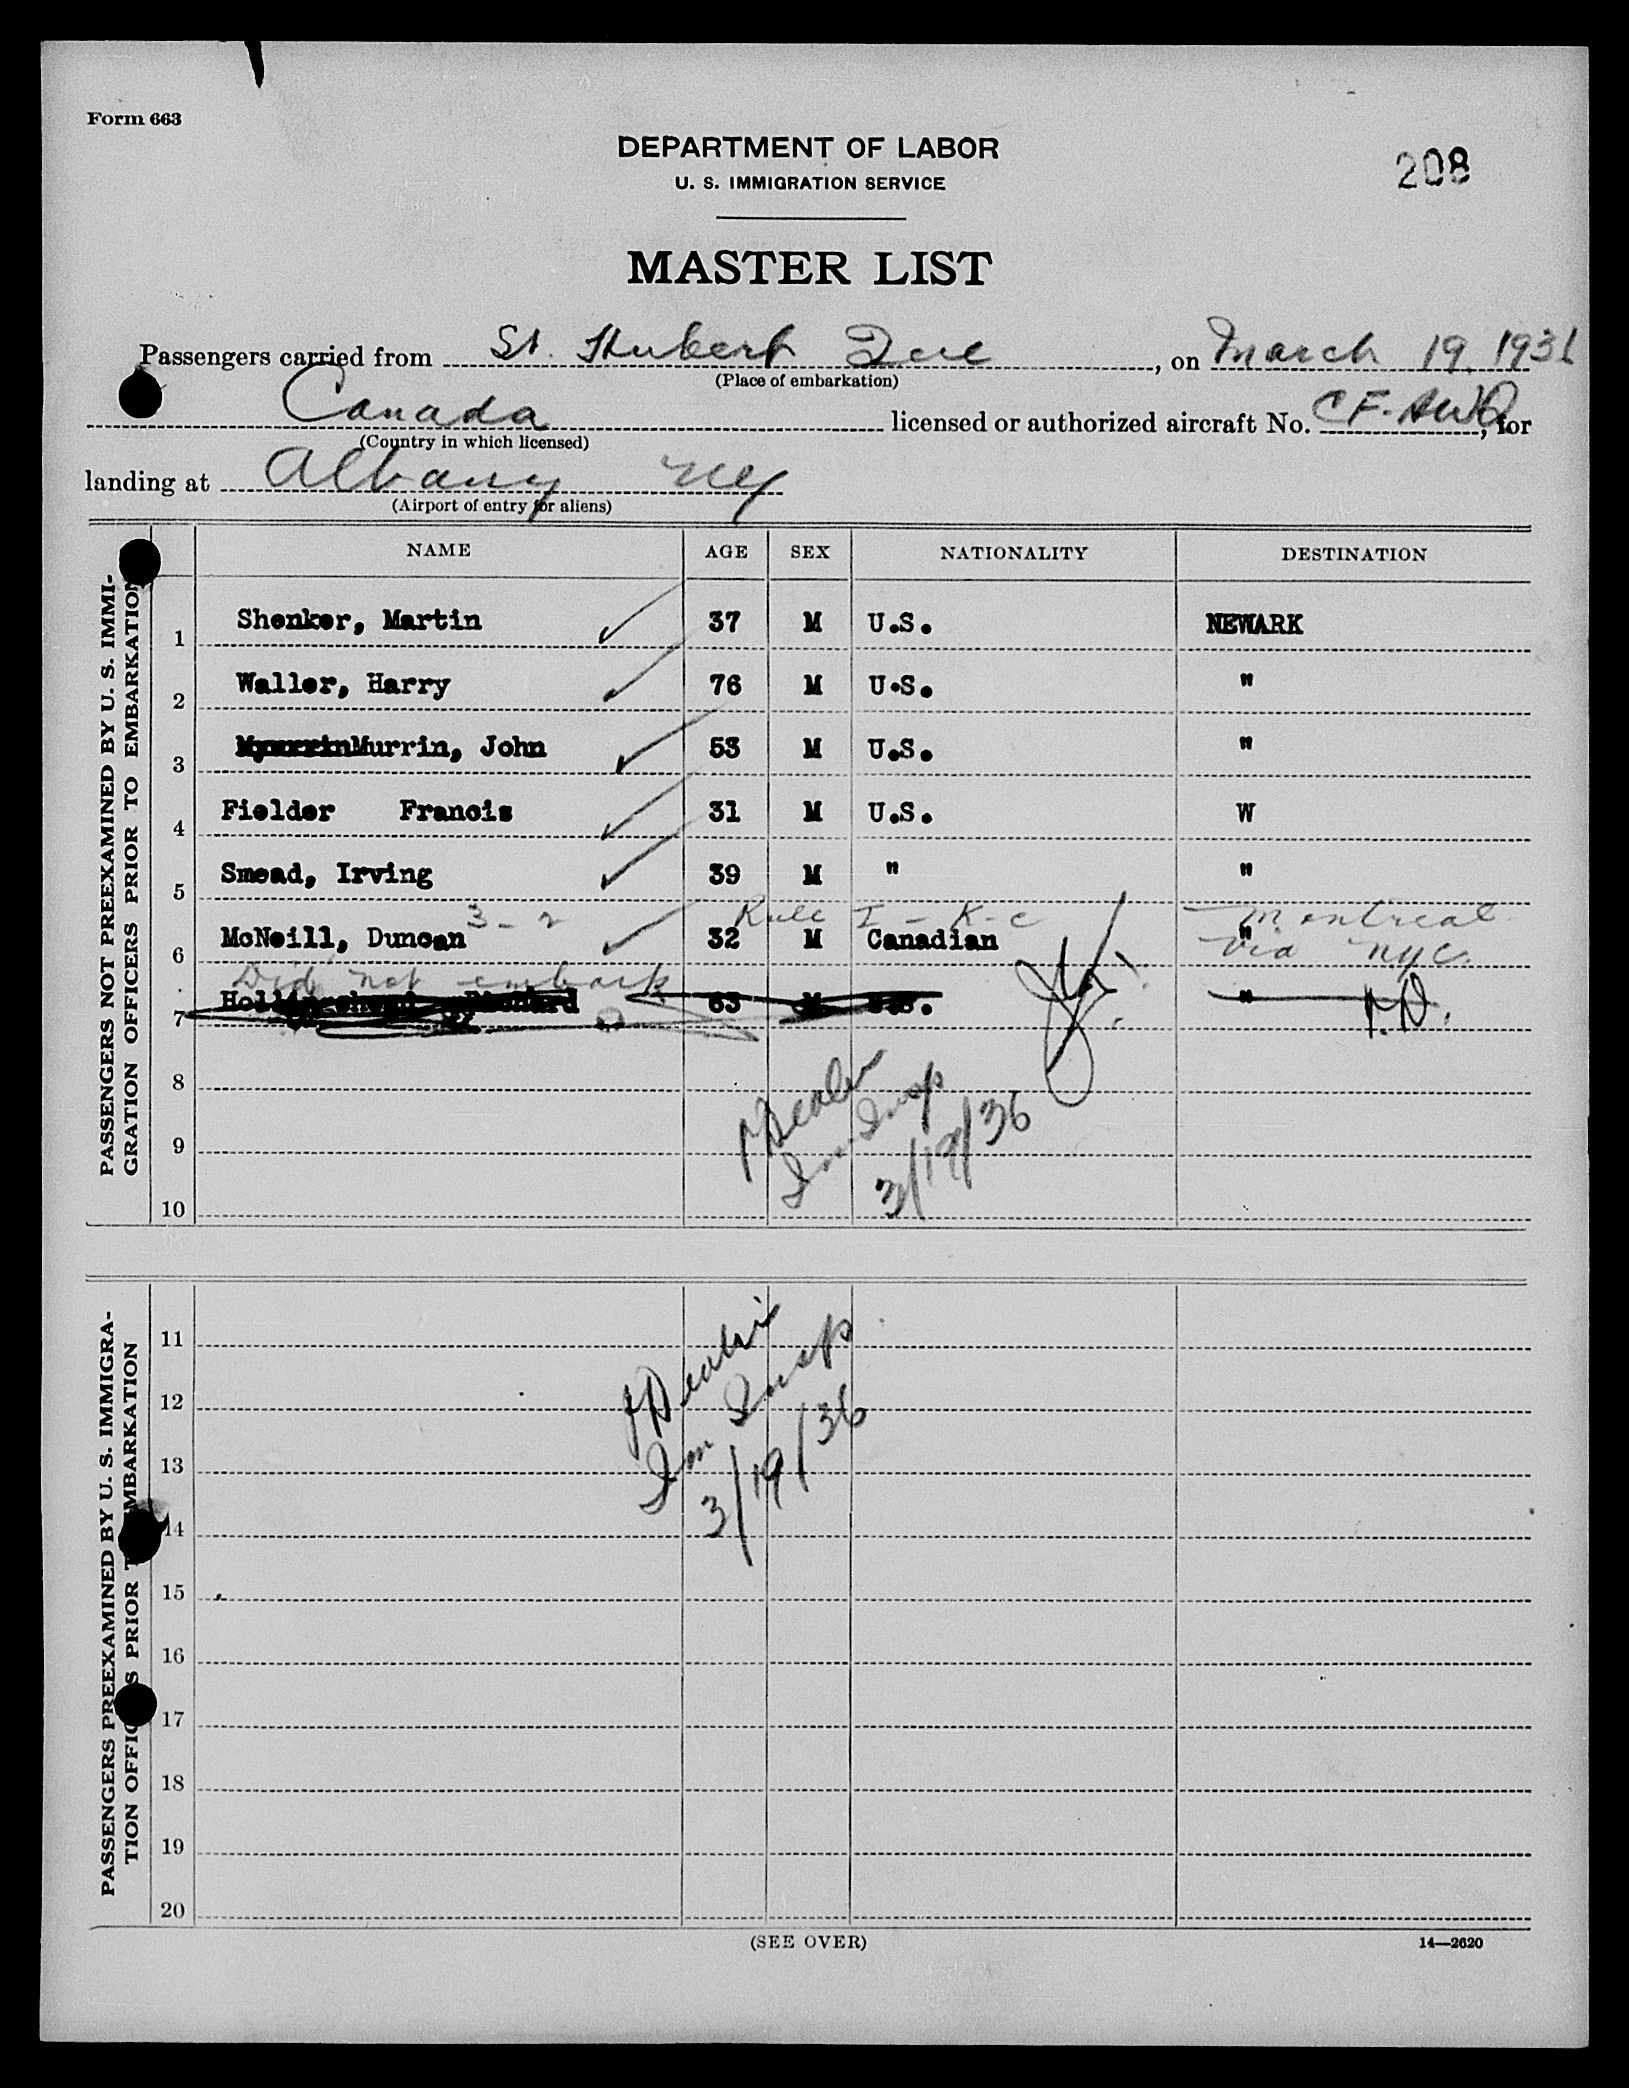 Form 663
DEPARTMENT OF LABOR
208
U. S. IMMIGRATION SERVICE
MASTER LIST
Passengers carried from St. Hubert Que, on March 19, 1936
(Place of embarkation)
Canada licensed or authorized aircraft No. CF-, for
(Country in which licensed)
landing at Albany NY
(Airport of entry for aliens)
NAME AGE SEX NATIONALITY DESTINATION
PASSENGERS NOT PREEXAMINED BY U. S. IMMI-
GRATION OFFICERS PRIOR TO EMBARKATION
1 Shenker, Martin 37 M U.S. NEWARK
2 Waller, Harry 76 M U.S. "
3 Murrin, John 53 M U.S. "
4 Fielder Francis 31 M U.S. W
5 Smead, Irving 39 M " "
3-2 Rule I - K-c Montreal
6 McNeill, Duncan 32 M Canadian "
via NYC.
Did not embark
7 63 M U.S. "
8
9
10
Imm Insp
3/19/36
PASSENGERS PREEXAMINED BY U. S. IMMIGRA-
TION OFFICERS PRIOR TO EMBARKATION
11
12
13
14
15
16
17
18
19
20
Imm Insp
3/19/36
(SEE OVER)
14—2620